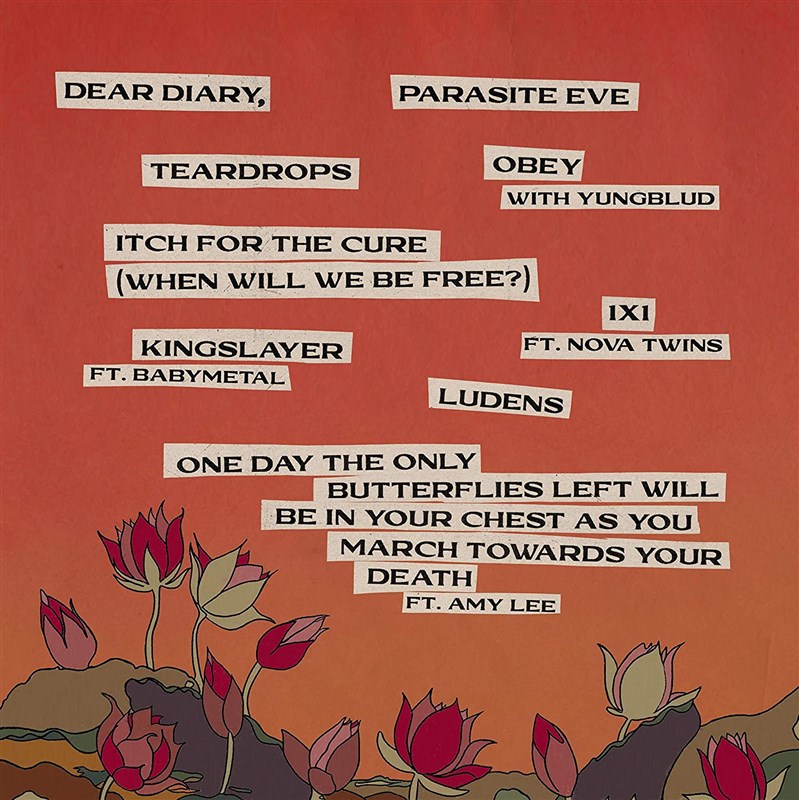 DEAR DIARY,
PARASITE EVE
TEARDROPS
OBEY
WITH YUNGBLUD
ITCH FOR THE CURE
(WHEN WILL WE BE FREE?)
1X1
FT. NOVA TWINS
KINGSLAYER
FT. BABYMETAL
LUDENS
ONE DAY THE ONLY
BUTTERFLIES LEFT WILL
BE IN YOUR CHEST AS YOU
MARCH TOWARDS YOUR
DEATH
FT. AMY LEE